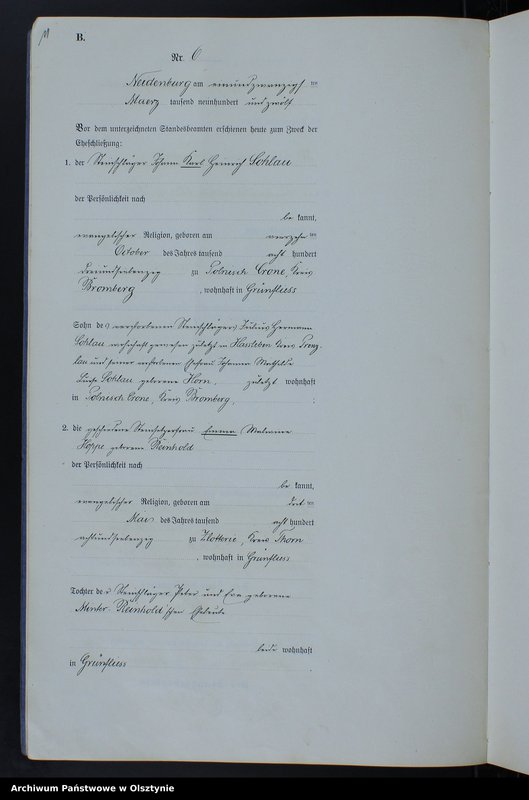 B.
Nr. 6
Neidenburg am einundzwanzigsten
Maerz tausend neunhundert und zwölf
Vor dem unterzeichneten Standesbeamten erschienen heute zum Zweck der
Eheschließung:
1. der Steinschläger Johann Karl Heinrich Sohlau
der Persönlichkeit nach
be kannt,
evangelischer Religion, geboren am vierzehnten
October des Jahres tausend acht hundert
dreiundsiebenzig zu Polnisch Crone, Kreis
Bromberg, wohnhaft in Grünfliess
Sohn des verstorbenen Steinschlägers Julius Hermann
Sohlau wohnhaft gewesen zuletzt in Hassleben Kreis Prenz-
lau und seiner verstorbenen Ehefrau Johanna Mathilde
Sohlau geborene Horn, zuletzt wohnhaft
in Polnisch Crone, Kreis Bromberg.
2. die geschiedene Steinsetzerfrau Emma
Hoppe geborene Reinhold
der Persönlichkeit nach
be kannt,
evangelischer Religion, geboren am dritten
Mai des Jahres tausend acht hundert
achtundsiebenzig zu Zlotterie, Kreis Thorn
, wohnhaft in Grünfliess
Tochter der Steinschläger Peter und Eva geborene
Reinhold'schen Eheleute
beide wohnhaft
in Grünfliess
Archiwum Państwowe w Olsztynie